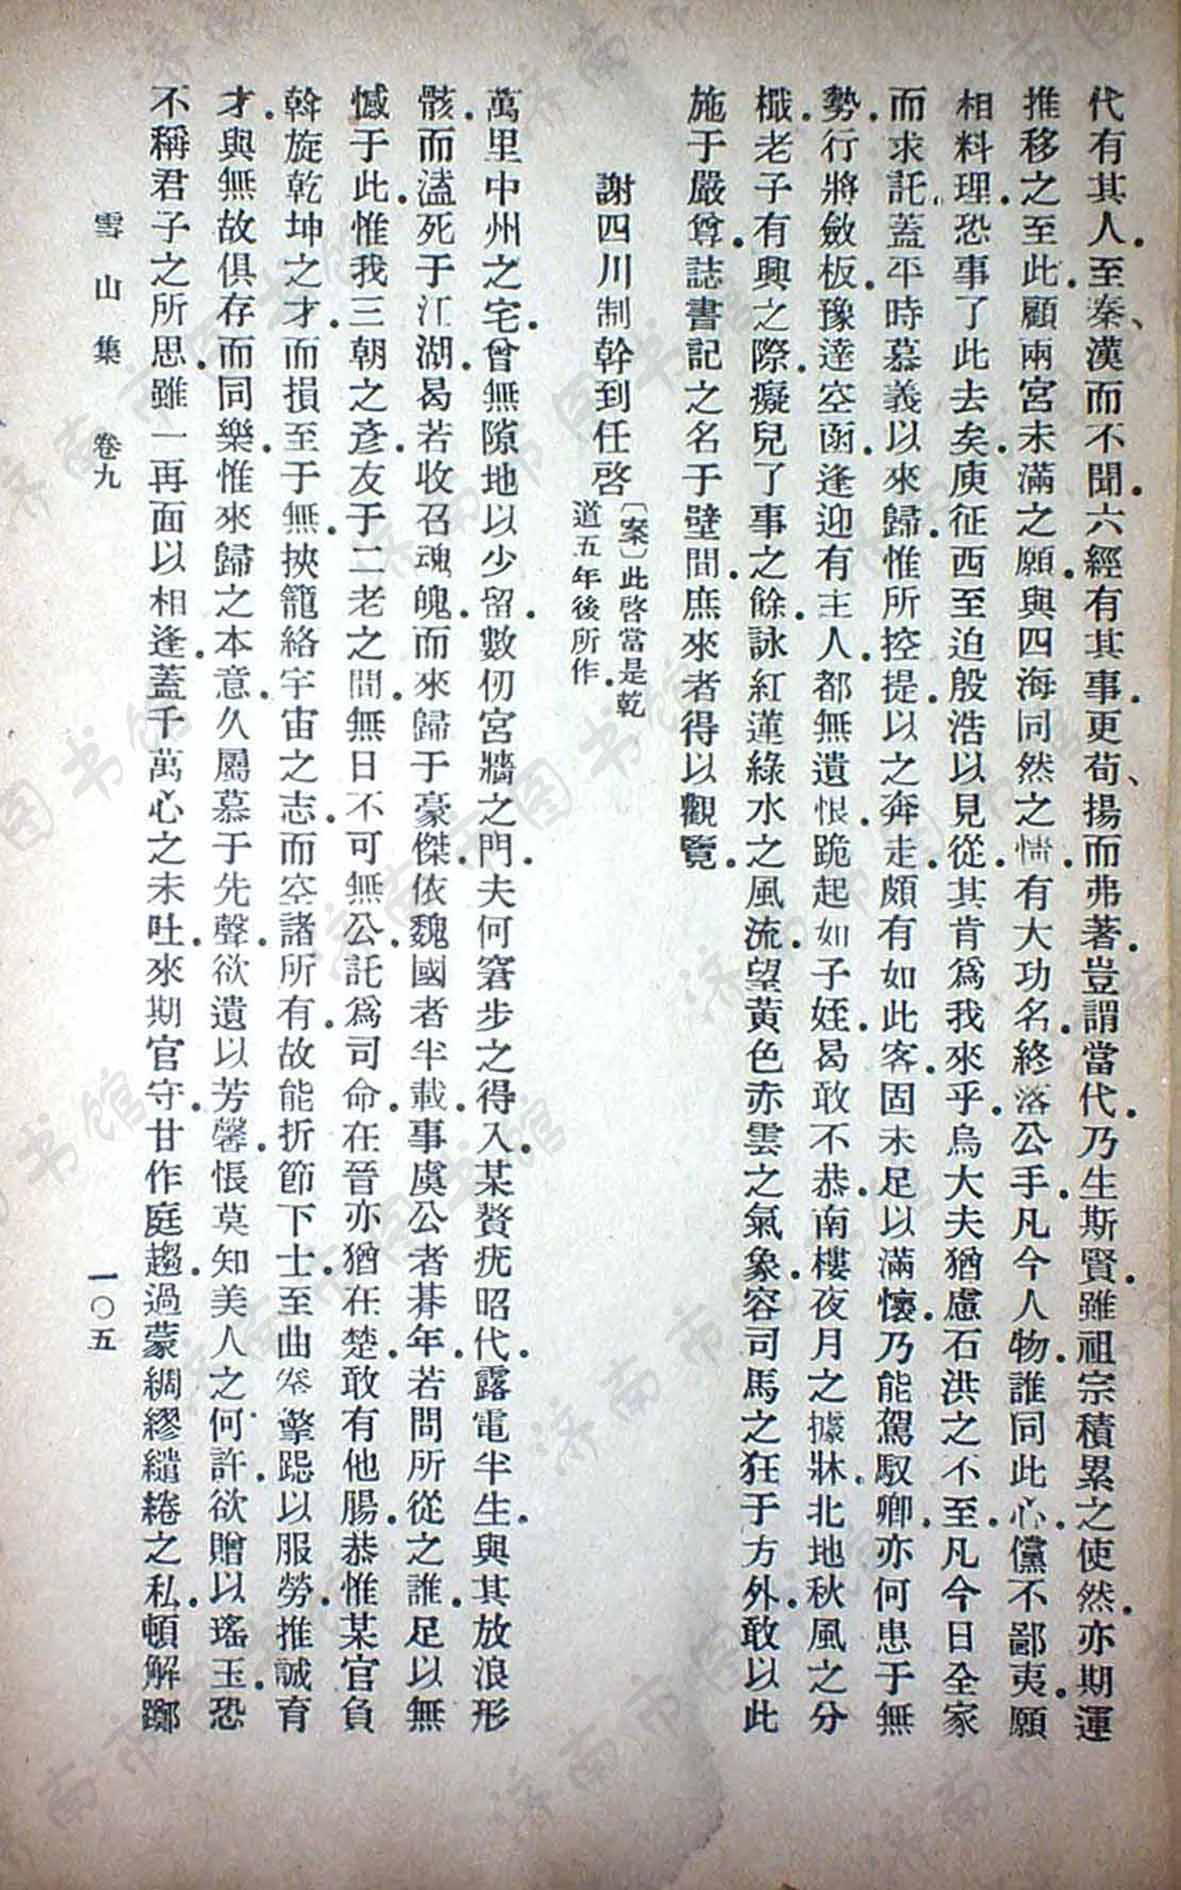 代有其人。至秦、漢而不聞。六經有其事。更荀、揚而弗著。豈謂當代。乃生斯賢。雖祖宗積累之使然。亦期運
推移之至此。顧兩宮未滿之願。與四海同然之情。有大功名。終落公手。凡今人物。誰同此心。儻不鄙夷。願
相料理。恐事了此去矣。庾征西至迫殷浩以見從。其肯爲我來乎。烏大夫猶慮石洪之不至。凡今日全家
而求託。蓋平時慕義以來歸。惟所控提。以之奔走。頗有如此客。固未足以滿懷。乃能駕馭卿。亦何患于無
勢。行將斂板。豫達空函。逢迎有主人。都無遺恨。跪起如子姪。曷敢不恭。南樓夜月之據牀。北地秋風之分
檝。老子有興之際。癡兒了事之餘。詠紅蓮綠水之風流。望黃色赤雲之氣象。容司馬之狂于方外。敢以此
施于嚴尊。誌書記之名于壁間。庶來者得以觀覽。
謝四川制幹到任啓〔案〕此啓當是乾
道五年後所作。
萬里中州之宅。曾無隙地以少留。數仞宮牆之門。夫何窘步之得入。某贅疣昭代。露電半生。與其放浪形
骸。而溘死于江湖。曷若收召魂魄。而來歸于豪傑。依魏國者半載。事虞公者朞年。若問所從之誰。足以無
憾于此。惟我三朝之彥。友于二老之間。無日不可無公。託爲司命。在晉亦猶在楚。敢有他腸。恭惟某官負
斡旋乾坤之才。而損至于無。挾籠絡宇宙之志。而空諸所有。故能折節下士。至曲拳擎跽以服勞。推誠育
才。與無故俱存而同樂。惟來歸之本意。久屬慕于先聲。欲遺以芳馨。悵莫知美人之何許。欲贈以瑤玉。恐
不稱君子之所思。雖一再面以相逢。蓋千萬心之未吐。來期官守。甘作庭趨。過蒙綢繆繾綣之私。頓解躑
雪山集 卷九 一〇五
济南市图书馆